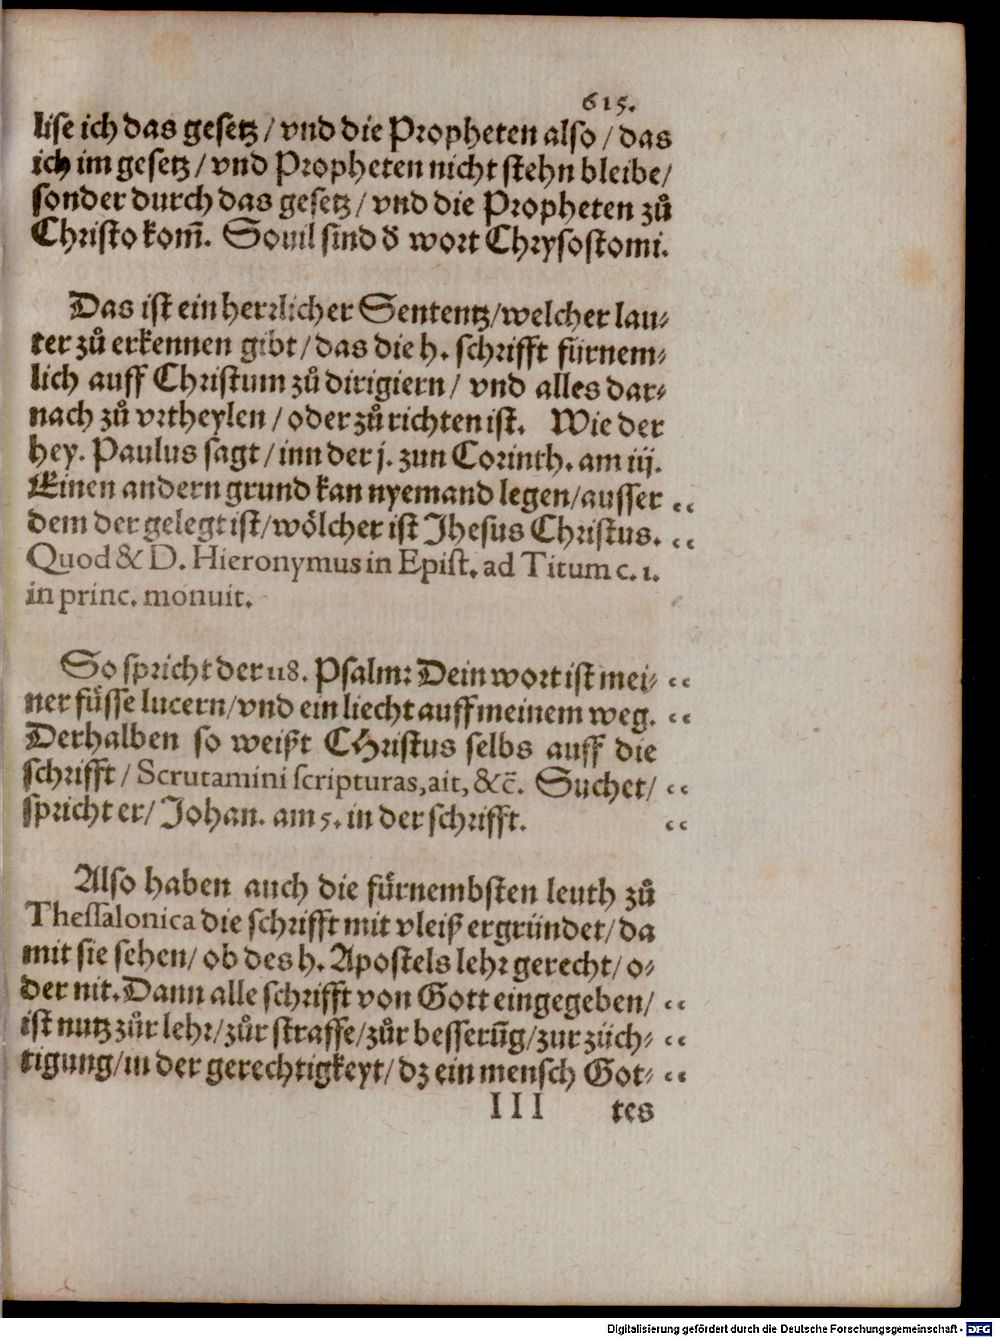 615.
lise ich das gesetz / vnd die Propheten also / das
ich im gesetz / vnd Propheten nicht stehn bleibe /
sonder durch das gesetz / vnd die Propheten zů
Christo kom̃. Souil sind d̕ wort Chrysostomi.
Das ist ein herrlicher Sententz / welcher lau⸗
ter zů erkennen gibt / das die h. schrifft fürnem⸗
lich auff Christum zů dirigiern / vnd alles dar⸗
nach zů vrtheylen / oder zů richten ist. Wie der
hey. Paulus sagt / inn der j. zun Corinth. am iij.
Einen andern grund kan nyemand legen / ausser “
dem der gelegt ist / wölcher ist Jhesus Christus. “
Quod & D. Hieronymus in Epist. ad Titum c. 1.
in princ. monuit.
So spricht der 118. Psalm: Dein wort ist mei⸗ “
ner füsse lucern / vnd ein liecht auff meinem weg. “
Derhalben so weißt CHristus selbs auff die
schrifft / Scrutamini scripturas, ait, &c̃. Suchet / “
spricht er / Johan. am 5. in der schrifft. “
Also haben auch die fürnembsten leuth zů
Thessalonica die schrifft mit vleiß ergründet / da
mit sie sehen / ob des h. Apostels lehr gerecht / o⸗
der nit. Dann alle schrifft von Gott eingegeben / “
ist nutz zůr lehr / zůr straffe / zůr besserũg / zur züch⸗ “
tigung / in der gerechtigkeyt / dz ein mensch Got⸗ “
III tes
Digitalisierung gefördert durch die Deutsche Forschungsgemeinschaft - DFG